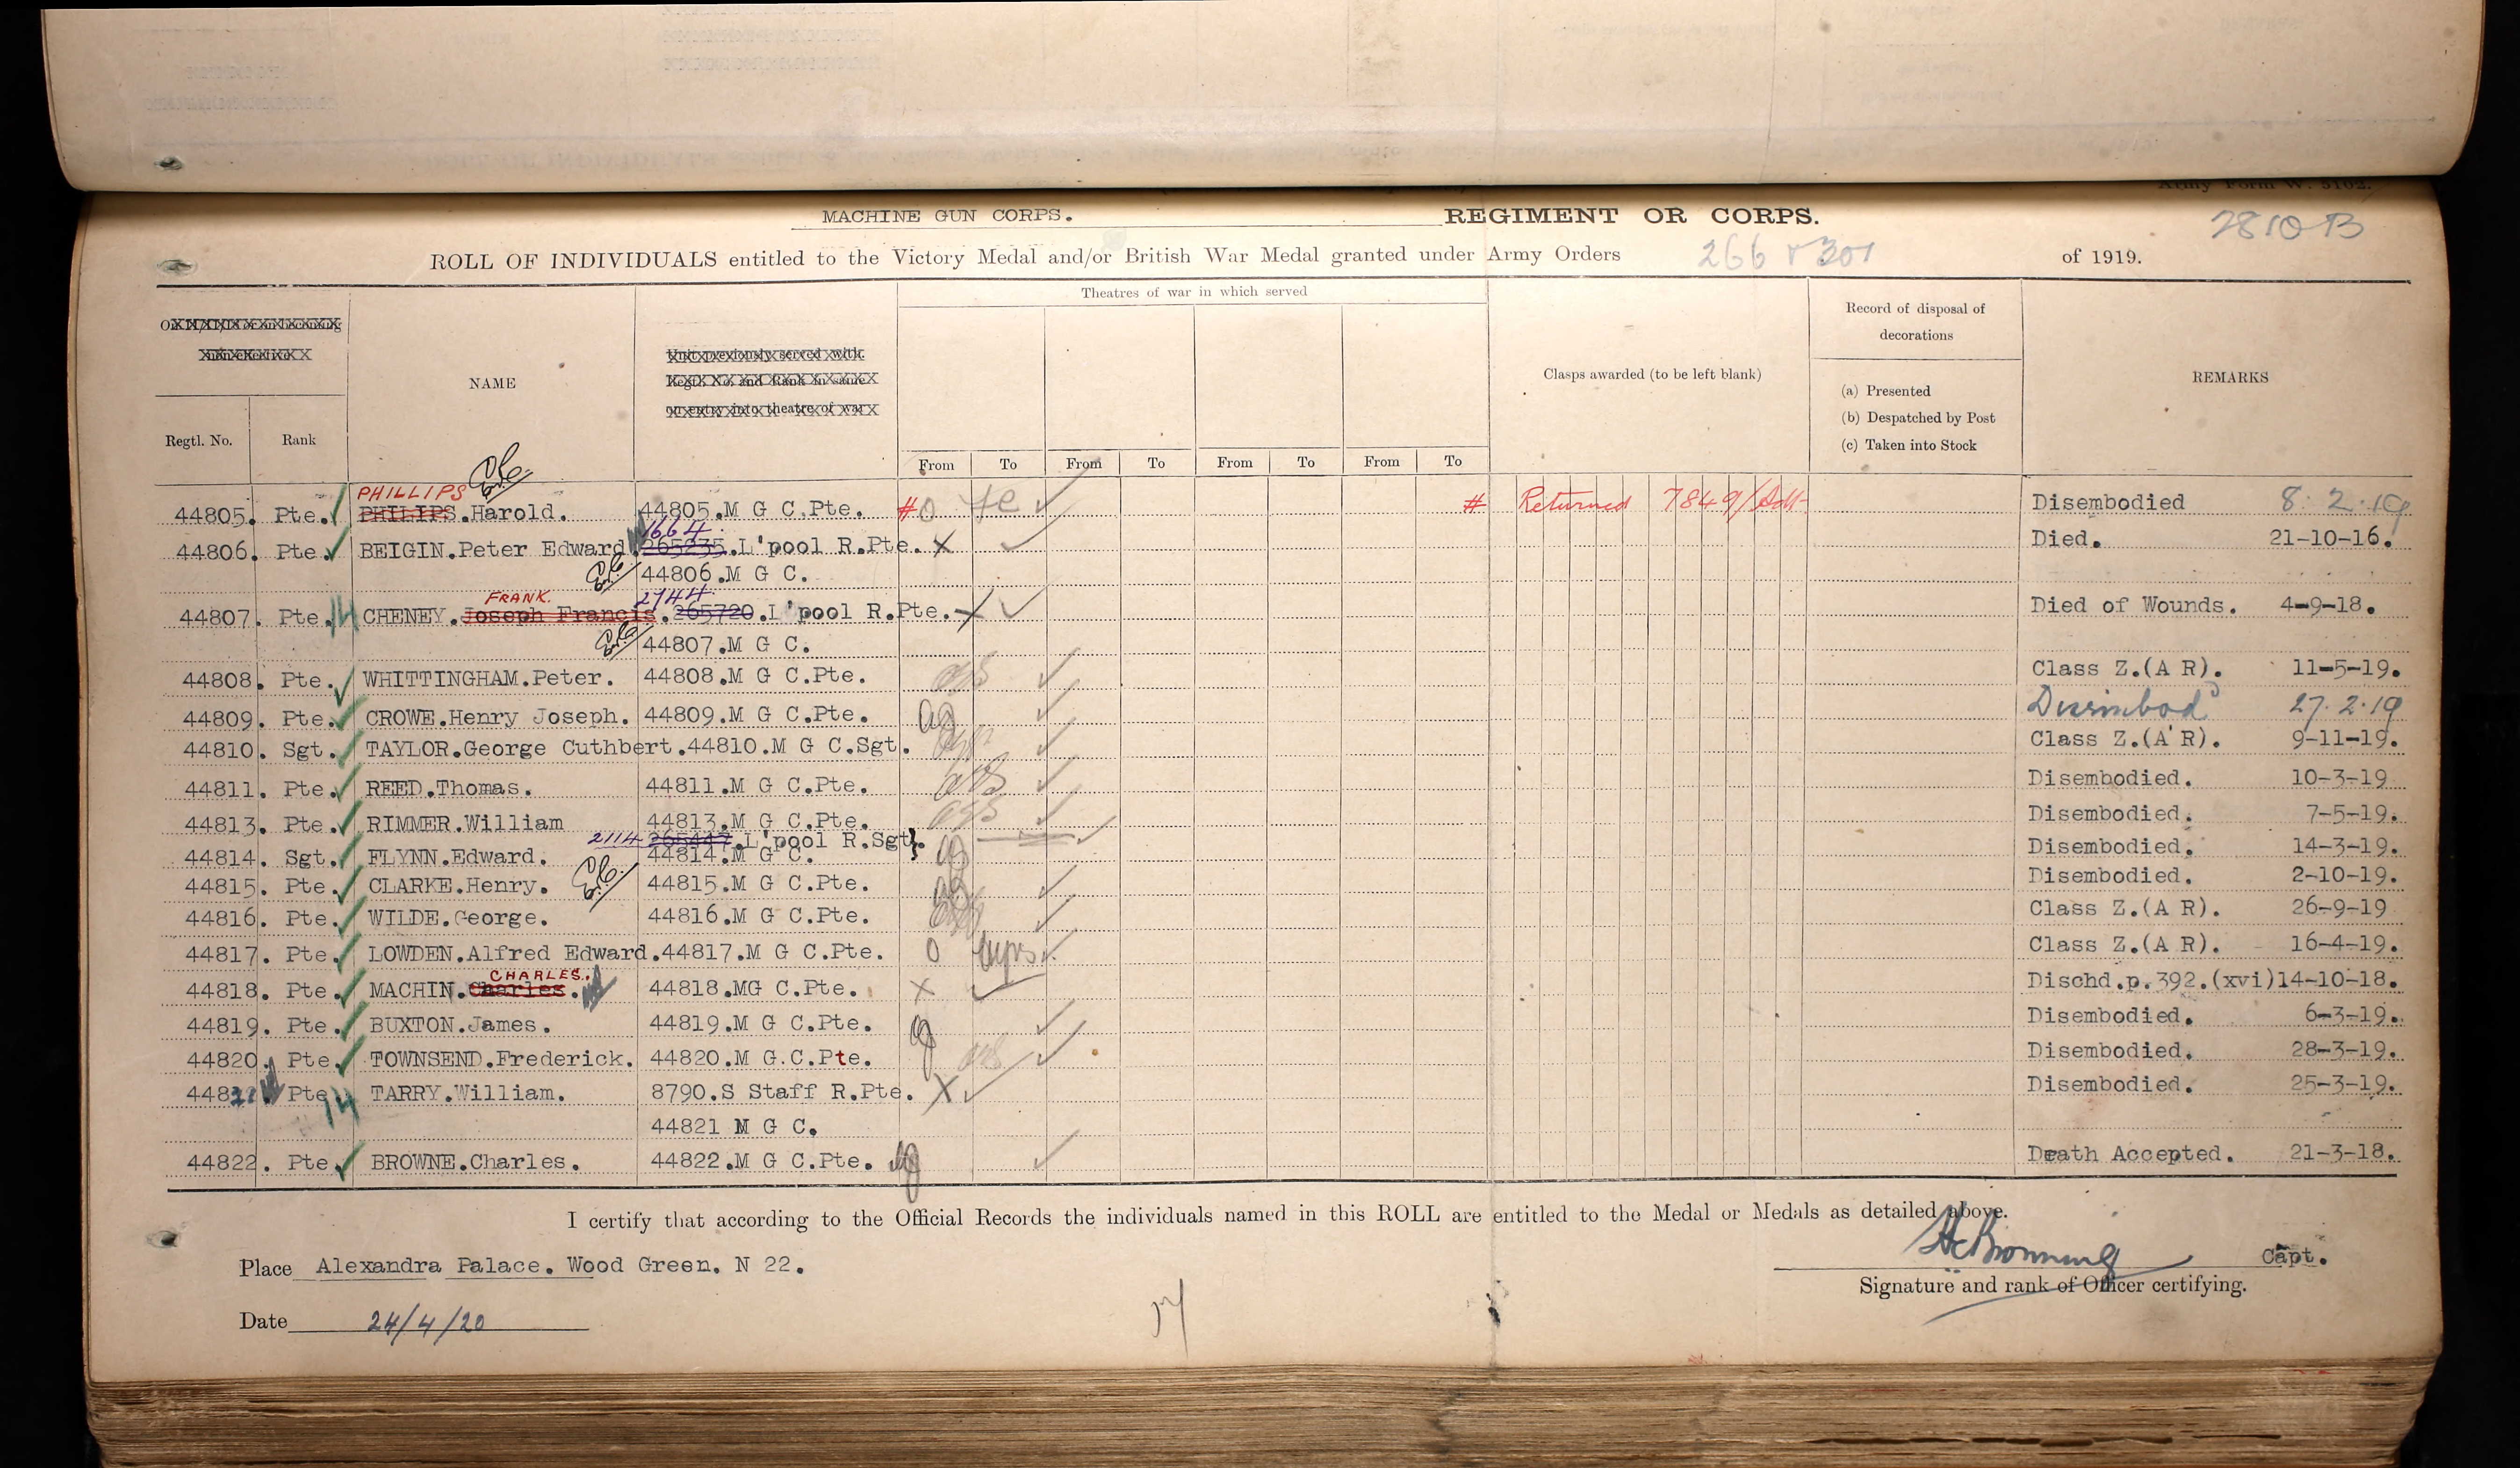 Army Form W. 5102.
MACHINE GUN CORPS. REGIMENT OR CORPS.
2810 B
ROLL OF INDIVIDUALS entitled to the Victory Medal and/or British War Medal granted under Army Orders 266 & 301 of 1919.
Theatres of war in which served
Record of disposal of
decorations
Unit previously served with.
Regtl. No. and Rank in same
on entry into theatre of war
NAME
Clasps awarded (to be left blank)
REMARKS
(a) Presented
(b) Despatched by Post
(c) Taken into Stock
Regtl. No. Rank
From To From To From To From To
PHILLIPS
44805. Pte. PHILIPS.Harold. 44805.M G C.Pte. # # Returned 7849/Adt Disembodied 8.2.19
1664
44806. Pte. BEIGIN.Peter Edward. 265235.L'pool R.Pte. X Died. 21-10-16.
44806.M G C.
FRANK. 2744
44807. Pte. CHENEY.Joseph Francis.265720.L'pool R.Pte. X Died of Wounds. 4-9-18.
44807.M G C.
44808. Pte. WHITTINGHAM.Peter. 44808.M G C.Pte. Class Z.(A R). 11-5-19.
44809. Pte. CROWE.Henry Joseph. 44809.M G C.Pte. Disembod 27.2.19
44810. Sgt. TAYLOR.George Cuthbert.44810.M G C.Sgt. Class Z.(A R). 9-11-19.
44811. Pte. REED.Thomas. 44811.M G C.Pte. Disembodied. 10-3-19
44813. Pte. RIMMER.William 44813.M G C.Pte. Disembodied. 7-5-19.
2114 265447.L'pool R.Sgt}.
44814. Sgt. FLYNN.Edward. 44814.M G C. Disembodied. 14-3-19.
44815. Pte. CLARKE.Henry. 44815.M G C.Pte. Disembodied. 2-10-19.
44816. Pte. WILDE.George. 44816.M G C.Pte. Class Z.(A R). 26-9-19
44817. Pte. LOWDEN.Alfred Edward.44817.M G C.Pte. Class Z.(A R). 16-4-19.
CHARLES.
44818. Pte. MACHIN.Charles. 44818.MG C.Pte. X Dischd.p.392.(xvi)14-10-18.
44819. Pte. BUXTON.James. 44819.M G C.Pte. Disembodied. 6-3-19.
44820. Pte. TOWNSEND.Frederick. 44820.M G.C.Pte. Disembodied. 28-3-19.
44821 Pte TARRY.William. 8790.S Staff R.Pte. X Disembodied. 25-3-19.
44821 M G C.
44822. Pte. BROWNE.Charles. 44822.M G C.Pte. Death Accepted. 21-3-18.
I certify that according to the Official Records the individuals named in this ROLL are entitled to the Medal or Medals as detailed above.
Place Alexandra Palace. Wood Green. N 22. Capt.
Signature and rank of Officer certifying.
Date 24/4/20